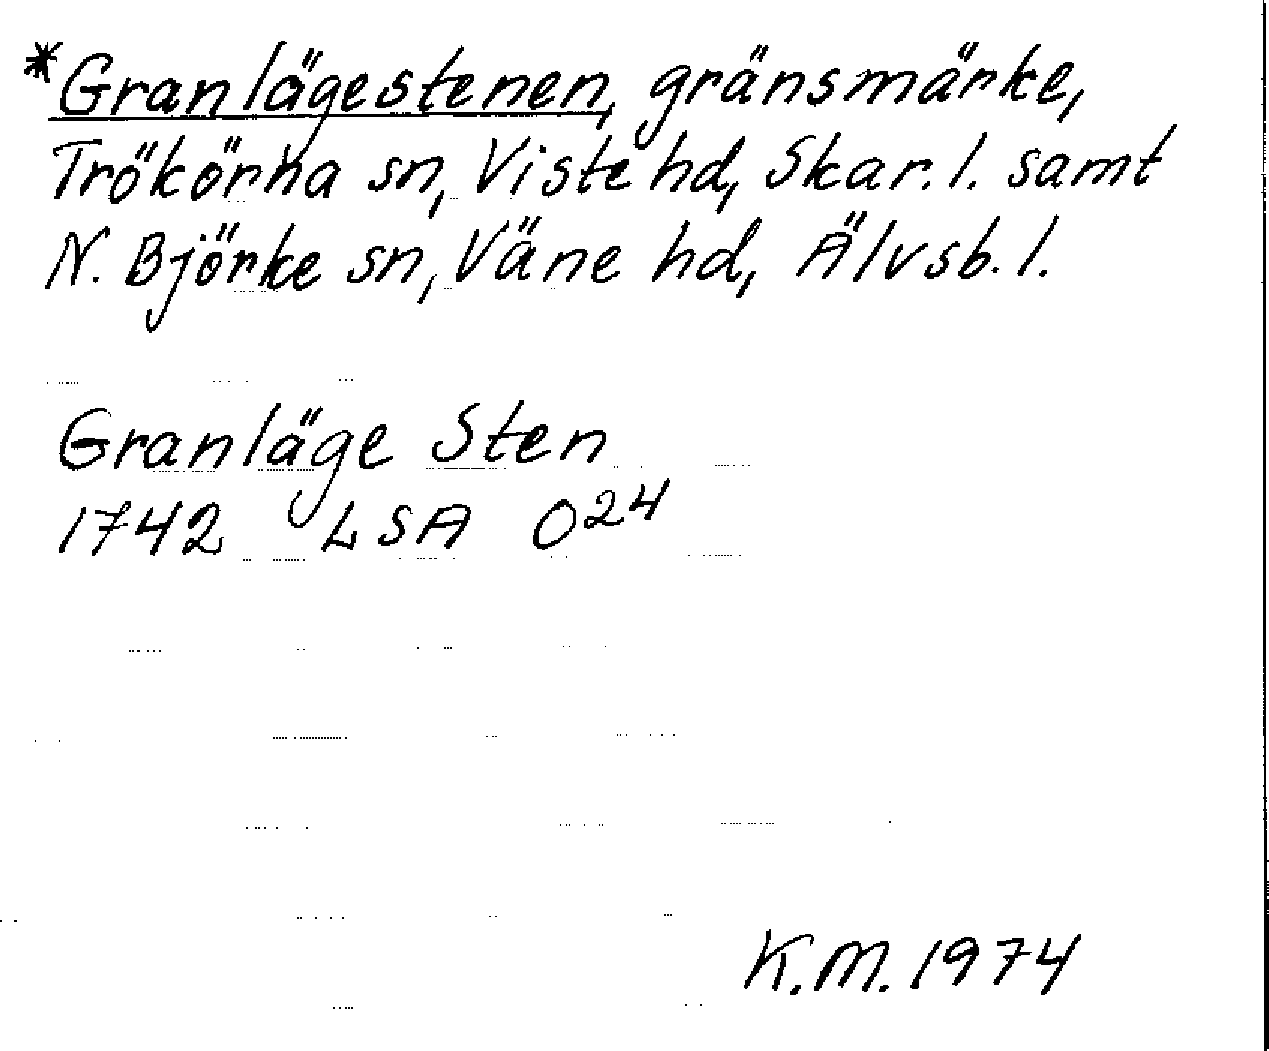 *Granlägestenen, gränsmärke,
Trökörna sn, Viste hd, Skar. l. samt
N. Björke sn, Väne hd, Älvsb. l.
Granläge Sten
1742 LSA O24
K.M. 1974